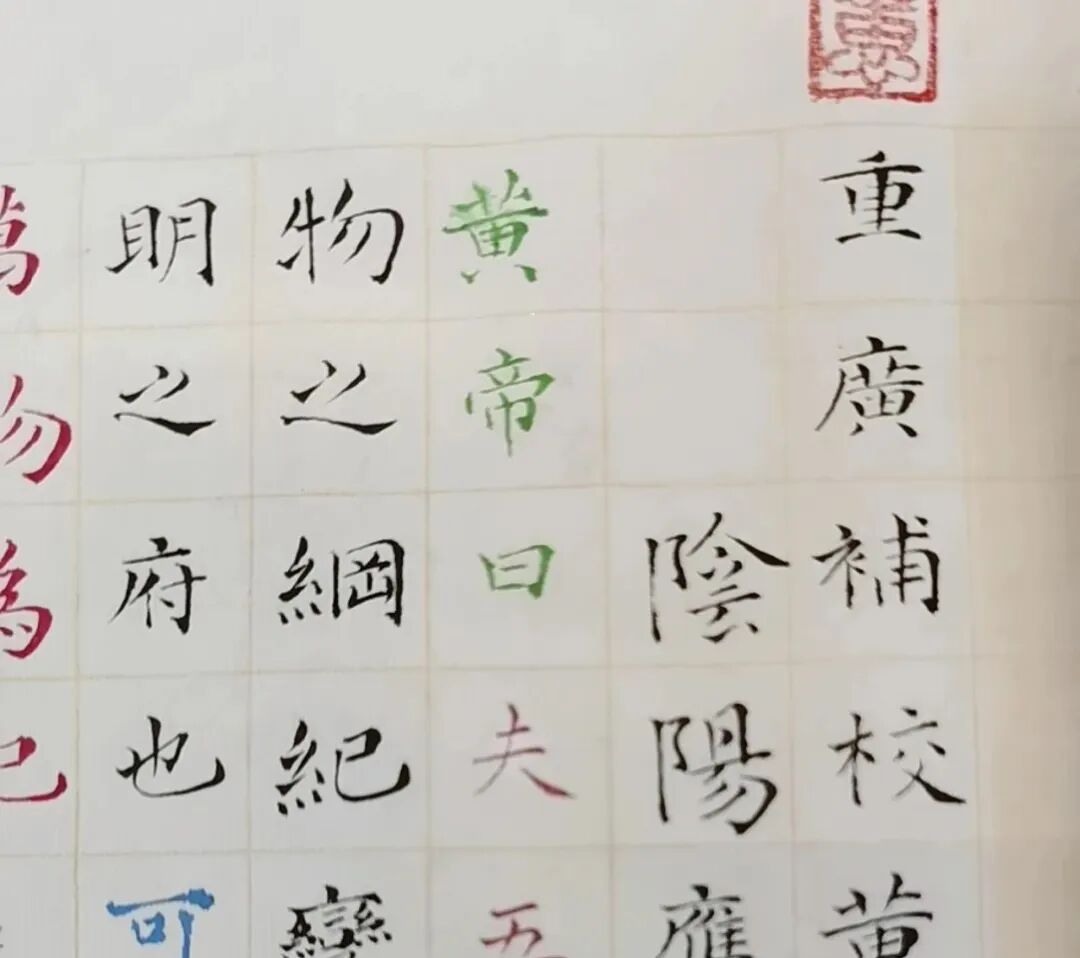 重廣補校黄
陰陽應
黄帝曰夫五
物之綱紀變
眀之府也可